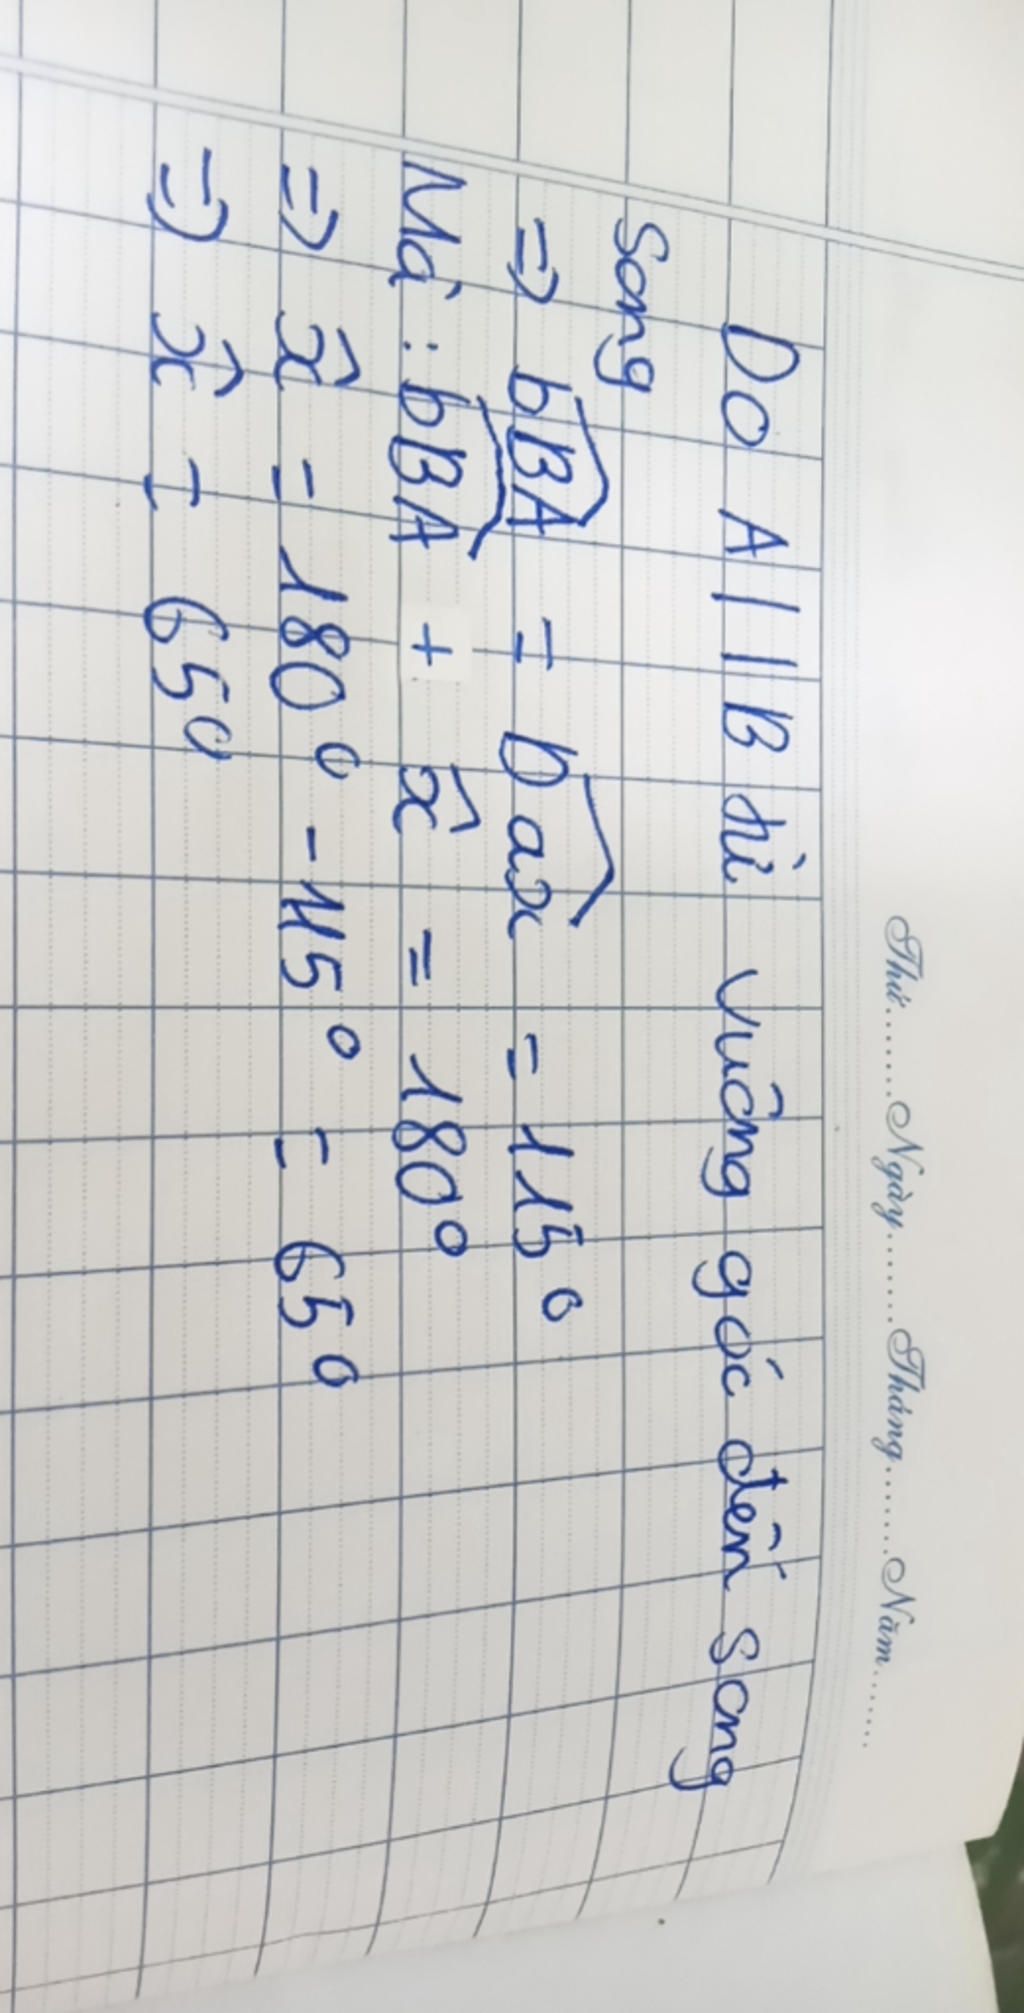 Thứ.......Ngày.......Tháng.......Năm.......
Do A || B từ vuông góc đến song
song
=> bBA = Dax = 115°
Mà : bBA + x̂ = 180°
=> x̂ = 180° - 115° = 65°
=> x̂ = 65°